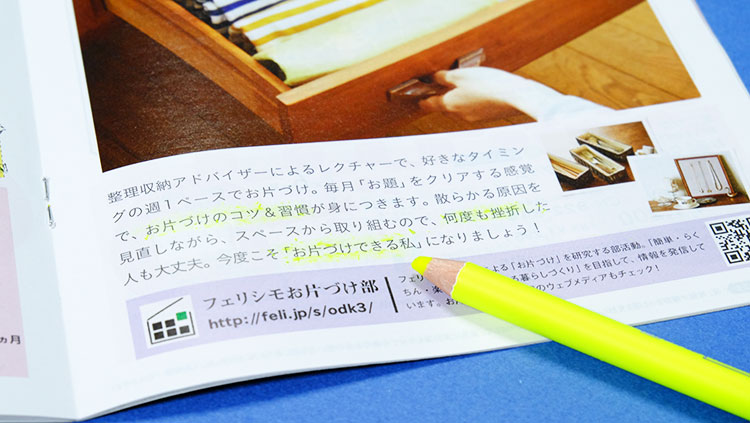 整理収納アドバイザーによるレクチャーで、好きなタイミン
グの週1ペースでお片づけ。毎月「お題」をクリアする感覚
で、お片づけのコツ&習慣が身につきます。散らかる原因を
見直しながら、スペースから取り組むので、何度も挫折した
人も大丈夫。今度こそ「お片づけできる私」になりましょう!
フェリシモお片づけ部
http://feli.jp/s/odk3/
よる「お片づけ」を研究する部活動。「簡単・らく
暮らしづくり」を目指して、情報を発信して
います。
のウェブメディアもチェック!
ヵ月